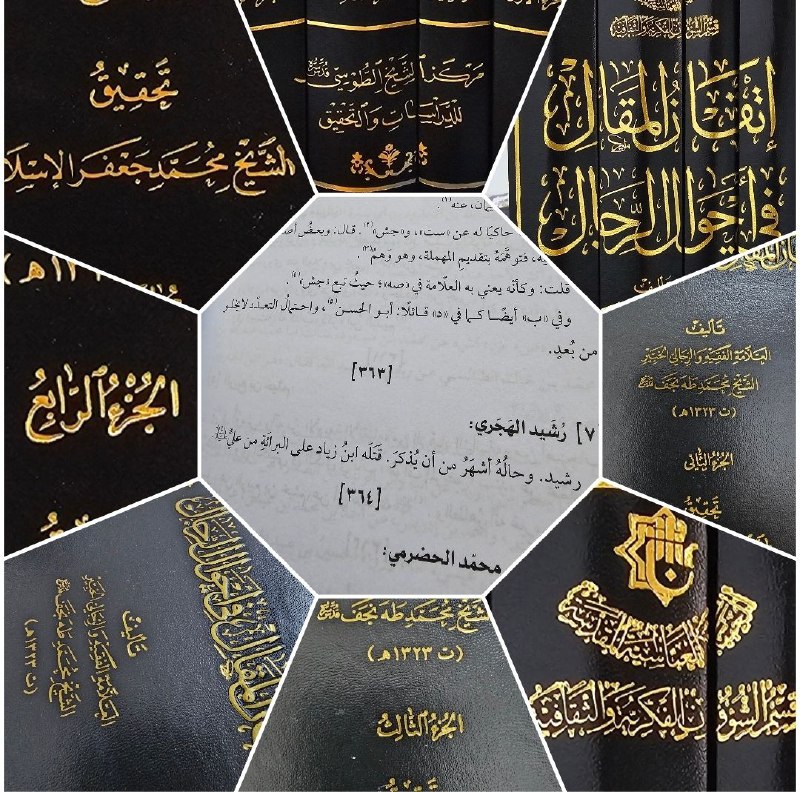 تحقيق
الشيخ محمد جعفر الإسلا
مركز الشيخ الطوسي قدس سره
للدراسات والتحقيق
قسم الشؤون الفكرية والثقافية
إتقان المقال
في أحوال الرجال
الجزء الرابع
عنه(١).
حاكيًا له عن «ست»، و«جش»(٢). قال: وبعضُ أصـ
ـه، فتوهَّمَهُ بتقديمِ المهملة، وهو وَهمٌ(٣).
قلت: وكأنّه يعني به العلّامة في «صه»؛ حيثُ تبع «جش»(٤)
وفي «ب» أيضًا كما في «د» قائلًا: أبو الحسن(٥)، واحتمالُ التعدّد لا يخلو
من بُعدٍ.
[٣٦٣]
٧] رُشَيد الهَجَري:
رشيد. وحالُهُ أشهَرُ من أن يُذكرَ. قتَلَه ابنُ زياد على البرائةِ من عليٍّ
[٣٦٤]
محمّد الحضرمي:
تأليف
العلامة الفقيه والرجالي الخبير
الشيخ محمد طه نجف قدس سره
(ت ١٣٢٣هـ)
الجزء الثاني
تحقيق
تأليف
العلامة الفقيه والرجالي الخبير
الشيخ محمد طه نجف قدس سره
(ت ١٣٢٣هـ)
الشيخ محمد طه نجف قدس سره
(ت ١٣٢٣هـ)
الجزء الثالث
العباسية المقدسة
قسم الشؤون الفكرية والثقافية